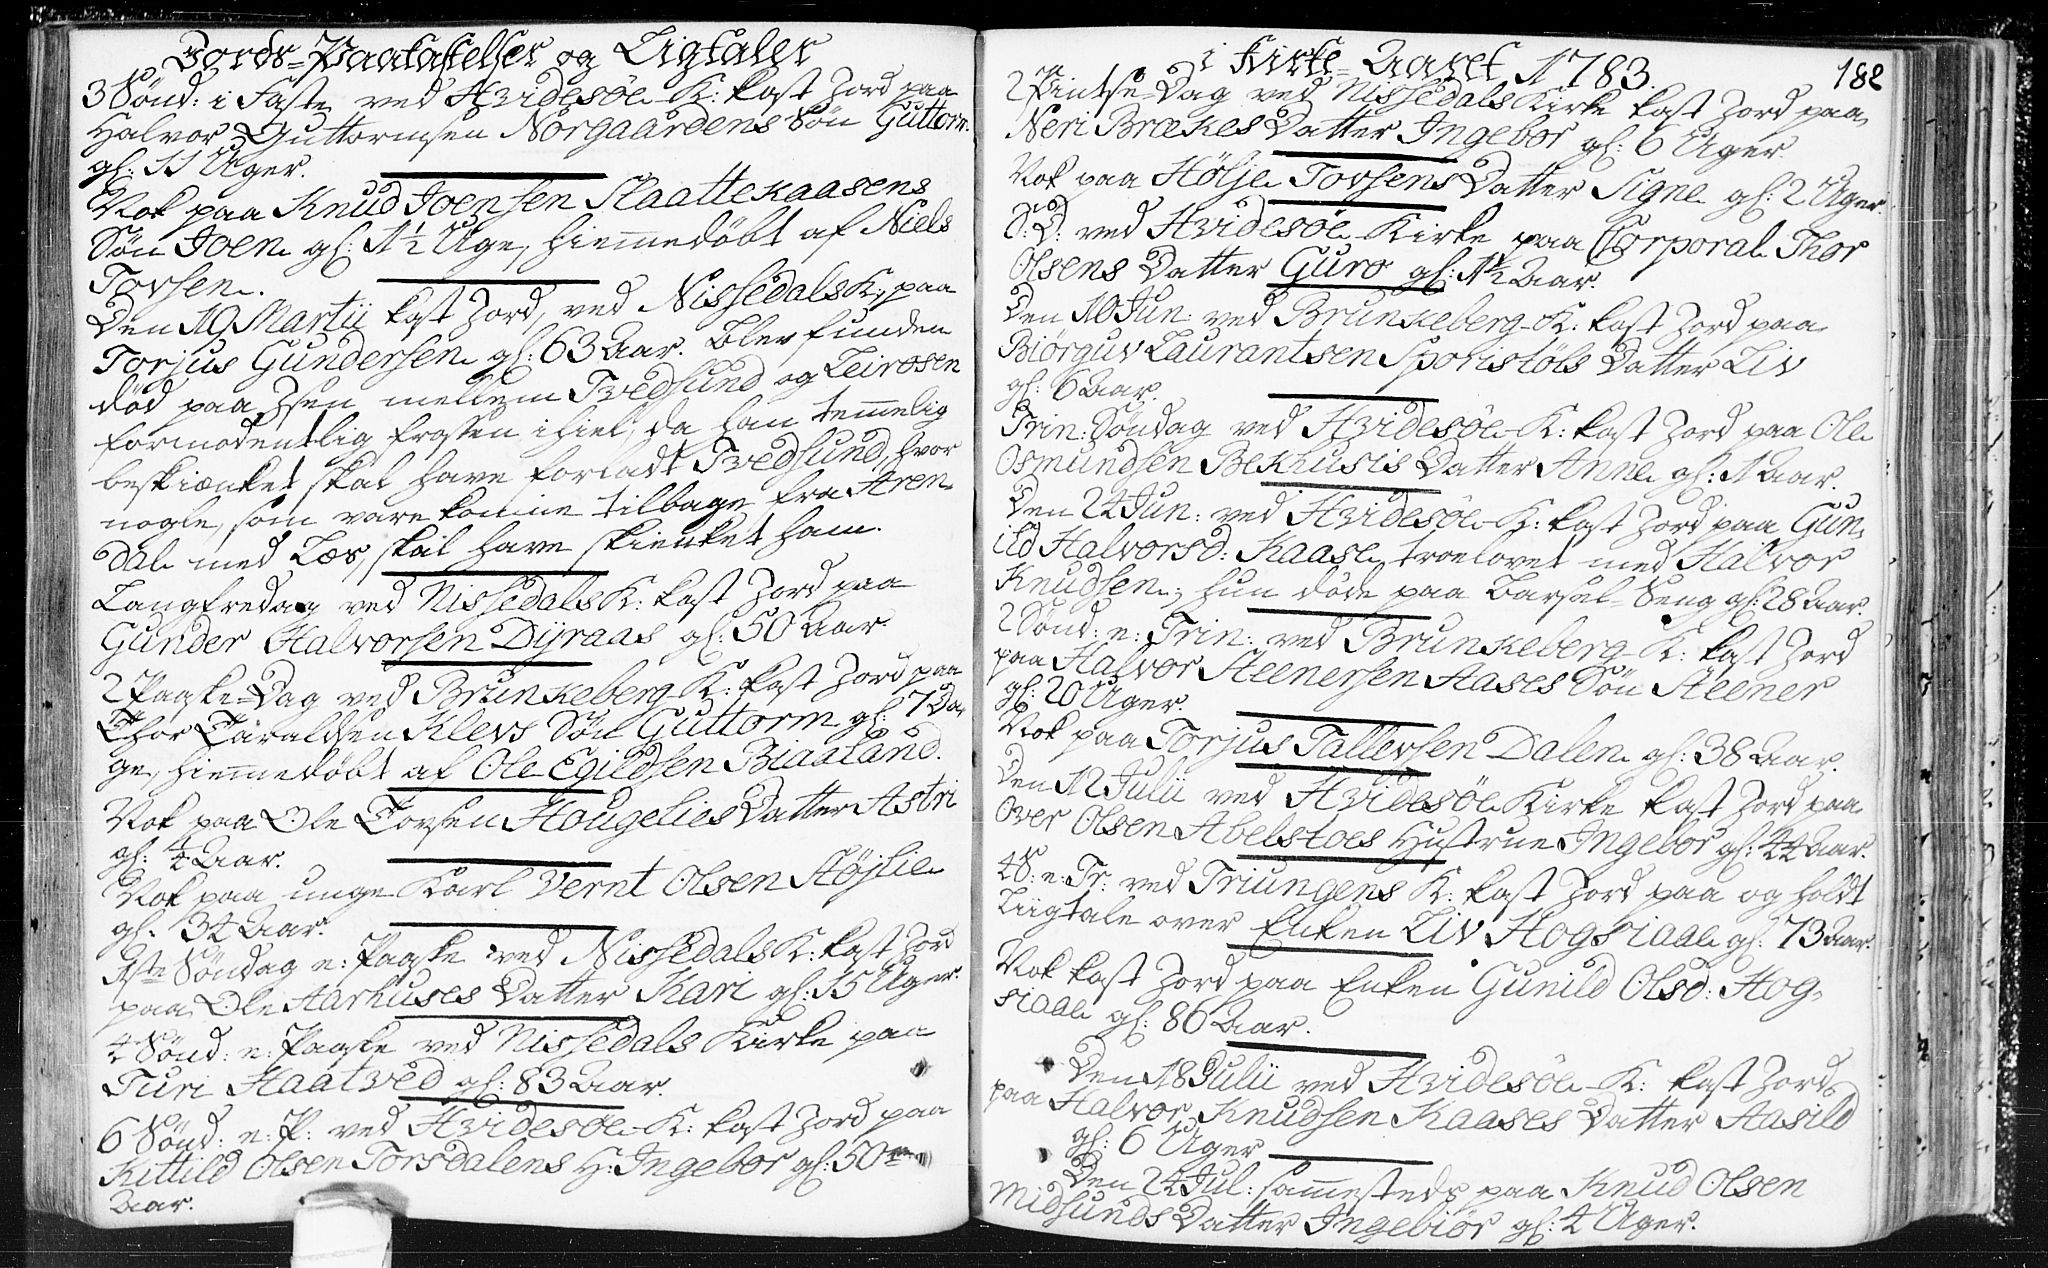 Jords-Paakastelser og Ligtaler
3 Sønd: i Faste ved Hvidesøe K: kast Jord paa
Halvor Guttormsen Norgaardens Søn Guttorm
gl: 11 Uger.
Nok paa Knud Joensen Slaattekaasens
Søn Joen gl: 1½ Uge, hiemmedøbt af Niels
Tovsen.
Den 19 Martii kast Jord, ved NissedalsK: paa
Torjus Gundersen gl: 63 Aar. Blev funden
død paa Isen mellem Tvedsund og Leirosen
formodentlig frossen ihiel, da han temmelig
beskiænket skal have forladt Tvedsund, hvor
nogle, som vare komne tilbage fra Aren-
dal med Læs, skal have skienket ham.
Langfredag ved NissedalsK: kast Jord paa
Gunder Halvorsen Dÿraas gl: 50 Aar.
2 Paaske-Dag ved Brunkeberg K: kast Jord paa
Thor Täraldsen Klevs Søn Guttorm gl: 7 Da-
ge, hiemmedøbt af Ole Egildsen Biaaland.
Nok paa Ole Tovsen Hougelies Datter Astri
gl: ¼ Aar.
Nok paa unge Karl Vernt Olsen Højlie
gl. 34 Aar.
1ste Søndag e: Paaske ved NissedalsK: kast Jord
paa Ole Aarhuses Datter Kari gl: 15 Uger.
4 Sønd: e: Paaske ved Nissedals Kirke paa
Turi Haatved gl: 83 Aar.
6 Sønd: e: P: ved Hvidesøe K: kast Jord paa
Kittild Olsen Torsdalens H: Ingebor gl: 50
Aar.
i Kirke-Aaret 1783.
182
2 Pintse Dag ved NissedalsKirke kast Jord paa
Neri Brækes Datter Ingebor gl: 6 Uger.
Nok paa Hølje Tovsens Datter Signe gl: 2 Uger.
S: D: ved Hvidesøe Kirke paa Corporal Thor
Olsens Datter Guro gl: 1½ Aar.
Den 10 Jun: ved Brunkeberg K: kast Jord paa
Biørguv Laurantsen Sporistøls Datter Liv
gl: 6 Aar.
Trin: Søndag ved Hvidesøe K: kast Jord paa Ole
Osmundsen Bekhusis Datter Anne gl: 1 Aar.
Den 24 Jun: ved Hvidesøe K: kast Jord paa Gun-
ild Halvorsd: Kaase, troelovet med Halvor
Knudsen; hun døde paa Barsel-Seng gl: 28 Aar.
2 Sønd: e: Trin: ved Brunkeberg K: kast Jord
paa Halvor Steenersen Aases Søn Steener
gl: 20 Uger.
Nok paa Torjus Tallevsen Dalen gl: 38 Aar.
Den 12 Julii ved Hvidesøe Kirke kast Jord paa
Over Olsen Abelstoes Hustrue Ingebor gl: 44 Aar.
4 S: e: Tr: ved Triungens K: kast Jord paa og holdt
Liigtale over Enken Liv Hogsiaae gl: 73 Aar.
Nok kast Jord paa Enken Gunild Olsd: Hog-
siaae gl: 86 Aar.
Den 18 Julii ved Hvidesøe K: kast Jord
paa Halvor Knudsen Kaases Datter Aasild
gl: 6 Uger
Den 24 Jul: sammesteds paa Knud Olsen
Midsunds Datter Ingebiør gl: 4 Uger.